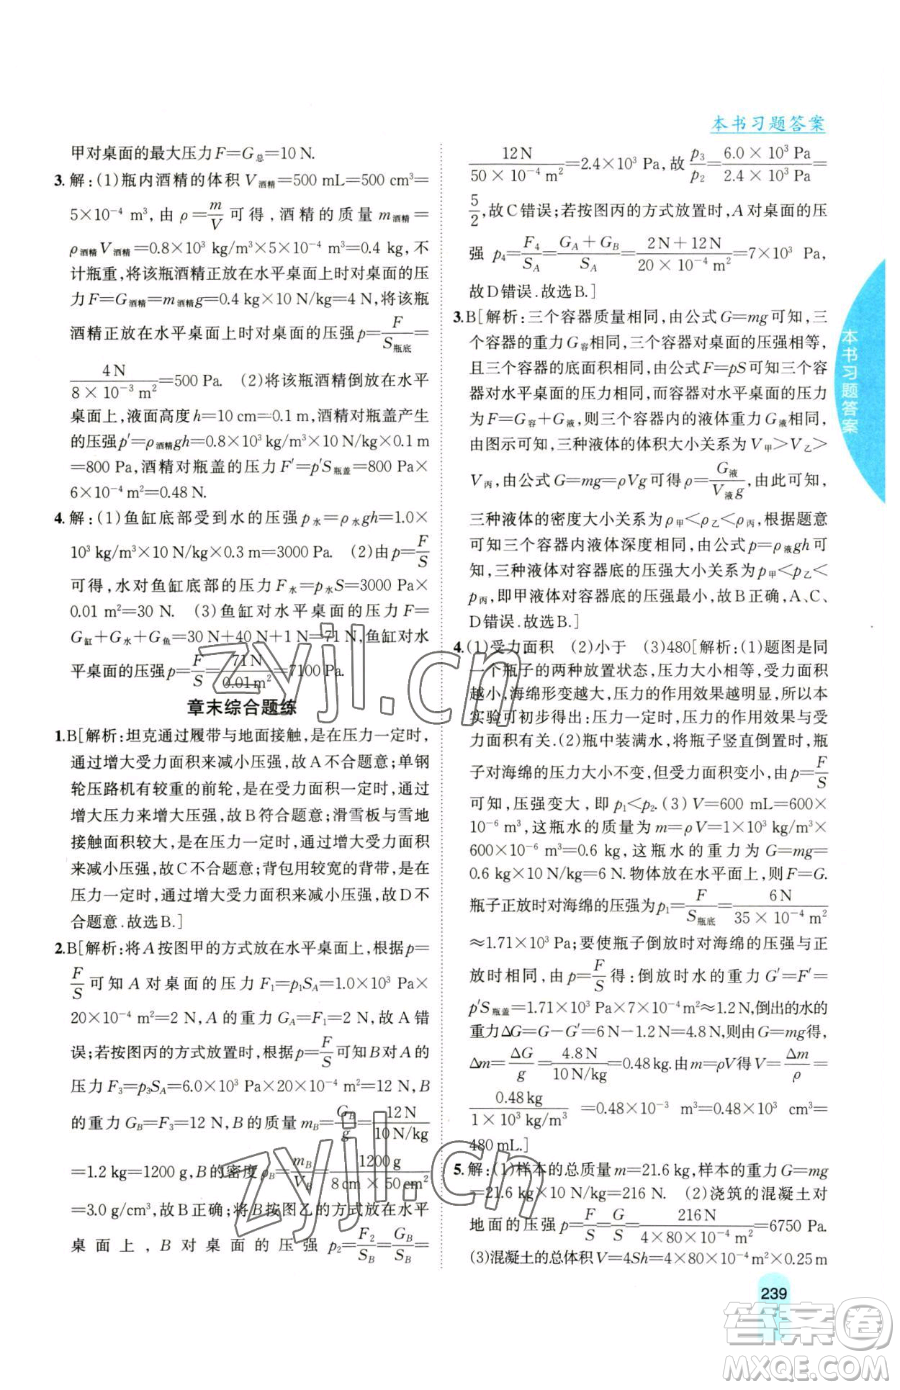 本书习题答案
甲对桌面的最大压力F=G总=10 N.
3. 解:(1)瓶内酒精的体积V酒精=500 mL=500 cm³=
5×10⁻⁴ m³,由ρ=m/V可得,酒精的质量m酒精=
ρ酒精V酒精=0.8×10³ kg/m³×5×10⁻⁴ m³=0.4 kg,不
计瓶重,将该瓶酒精正放在水平桌面上时对桌面的压
力F=G酒精=m酒精g=0.4 kg×10 N/kg=4 N,将该瓶
酒精正放在水平桌面上时对桌面的压强p=F/S瓶底=
4 N/(8×10⁻³ m²)=500 Pa. (2)将该瓶酒精倒放在水平
桌面上,液面高度h=10 cm=0.1 m,酒精对瓶盖产生
的压强p′=ρ酒精gh=0.8×10³ kg/m³×10 N/kg×0.1 m
=800 Pa,酒精对瓶盖的压力F′=p′S瓶盖=800 Pa×
6×10⁻⁴ m²=0.48 N.
4. 解:(1)鱼缸底部受到水的压强p水=ρ水gh=1.0×
10³ kg/m³×10 N/kg×0.3 m=3000 Pa. (2)由p=F/S
可得,水对鱼缸底部的压力F水=p水S=3000 Pa×
0.01 m²=30 N. (3)鱼缸对水平桌面的压力F=
G缸+G水+G鱼=30 N+40 N+1 N=71 N,鱼缸对水
平桌面的压强p=F/S=71 N/0.01 m²=7100 Pa.
章末综合题练
1. B[解析:坦克通过履带与地面接触,是在压力一定时,
通过增大受力面积来减小压强,故A不合题意;单钢
轮压路机有较重的前轮,是在受力面积一定时,通过
增大压力来增大压强,故B符合题意;滑雪板与雪地
接触面积较大,是在压力一定时,通过增大受力面积
来减小压强,故C不合题意;背包用较宽的背带,是在
压力一定时,通过增大受力面积来减小压强,故D不
合题意.故选B.]
2. B[解析:将A按图甲的方式放在水平桌面上,根据p=
F/S可知A对桌面的压力F₁=p₁S_A=1.0×10³ Pa×
20×10⁻⁴ m²=2 N,A的重力G_A=F₁=2 N,故A错
误;若按图丙的方式放置,由p=F/S可知B对A的
压力F₃=p₃S_A=6.0×10³ Pa×20×10⁻⁴ m²=12 N,B
的重力G_B=F₃=12 N,B的质量m_B=G_B/g=12 N/(10 N/kg)
=1.2 kg=1200 g,B的密度ρ_B=m_B/V_B=1200 g/(8 cm×50 cm²)
=3.0 g/cm³,故B正确;将B按图乙的方式放在水平
桌面上,B对桌面的压强p₂=F₂/S_B=G_B/S_B=
12 N/(50×10⁻⁴ m²)=2.4×10³ Pa,故p₃/p₂=(6.0×10³ Pa)/(2.4×10³ Pa)=
5/2,故C错误;若按图丙的方式放置时,A对桌面的压
强p₄=F₄/S_A=(G_A+G_B)/S_A=(2 N+12 N)/(20×10⁻⁴ m²)=7×10³ Pa,
故D错误.故选B.]
3. B[解析:三个容器质量相同,由公式G=mg可知,三
个容器的重力G容相同,三个容器对桌面的压强相等,
三个容器的底面积相同,由公式F=pS可知三个容
器对水平桌面的压力相同,而容器对水平桌面的压力
为F=G容+G液,则三个容器内的液体重力相同,
由图示可知,三种液体的体积大小关系为V甲>V乙>
V丙,由公式G=mg=ρVg可得ρ=G液/(V液g),由此可知,
三种液体的密度大小关系为ρ甲<ρ乙<ρ丙,根据题意
可知三个容器内液体深度相同,由公式p=ρ液gh可
知,三种液体对容器底的压强大小关系为p甲<p乙<
p丙,即甲液体对容器底的压强最小,故B正确,A、C、
D错误.故选B.]
4. (1)受力面积 (2)小于 (3)480[解析:(1)题图是同
一个瓶子的两种放置状态,压力大小相等,受力面积
越小,海绵形变越大,压力的作用效果越明显,所以本
实验可初步得出:压力的作用效果与受力面积
有关.(2)瓶中装满水,将瓶子竖直倒置时,瓶
子对海绵的压力大小不变,但受力面积变小,由p=F/S
可知,压强变大,即p₁<p₂.(3)V=600 mL=600×
10⁻⁶ m³,这瓶水的质量为m=ρV=1×10³ kg/m³
×600×10⁻⁶ m³=0.6 kg,这瓶水的重力G=mg=
0.6 kg×10 N/kg=6 N.物体放在水平面上,F=G.
瓶子正放时对海绵的压强为p₁=F/S瓶底=6 N/(35×10⁻⁴ m²)
≈1.71×10³ Pa;要使瓶子倒放时对海绵的压强与正
放时相同,由p=F/S得:倒放时水的重力G′=F′=
p′S瓶盖=1.71×10³ Pa×7×10⁻⁴ m²≈1.2 N,倒出的水的
重力ΔG=G−G′=6 N−1.2 N=4.8 N,则由G=mg得,
Δm=ΔG/g=4.8 N/(10 N/kg)=0.48 kg.故由ρ=m/V得V=Δm/ρ=
0.48 kg/(1×10³ kg/m³)=0.48×10⁻³ m³=0.48×10³ cm³=
480 mL.]
5. 解:(1)样本的总质量m=21.6 kg,样本的重力G=mg
=21.6 kg×10 N/kg=216 N. (2)浇筑的混凝土对
地面的压强p=F/S=G/S=216 N/(4×80×10⁻⁴ m²)=6750 Pa.
(3)混凝土的总体积V=4Sh=4×80×10⁻⁴ m²×0.25 m
本书习题答案
239
zyjl.cn
zyjl.cn
答案圈
MXQE.COM